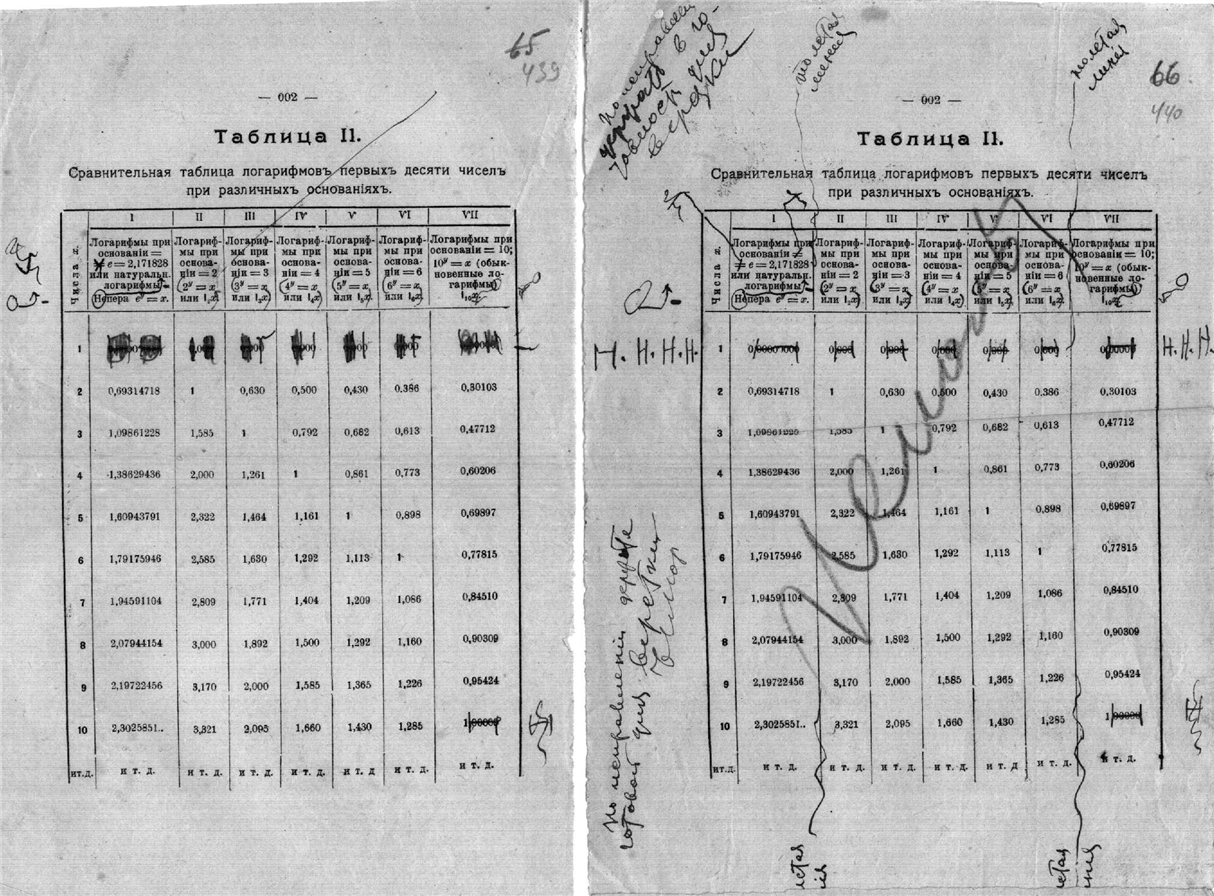 65
439
— 002 —
Таблица II.
Сравнительная таблица логарифмовъ первыхъ десяти чиселъ
при различныхъ основаніяхъ.
Числа x. I II III IV V VI VII
Логарифмы при основаніи = e = 2,171828 или натуральн. логарифмы Непера eʸ = x.
Логарифмы при основаніи = 2 (2ʸ = x или l₂x)
Логарифмы при основаніи = 3 (3ʸ = x или l₃x)
Логарифмы при основаніи = 4 (4ʸ = x или l₄x)
Логарифмы при основаніи = 5 (5ʸ = x или l₅x)
Логарифмы при основаніи = 6 (6ʸ = x или l₆x)
Логарифмы при основаніи = 10; 10ʸ = x (обыкновенные логарифмы) l₁₀x
1
2 0,69314718 1 0,630 0,500 0,430 0,386 0,30103
3 1,09861228 1,585 1 0,792 0,682 0,613 0,47712
4 1,38629436 2,000 1,261 1 0,861 0,773 0,60206
5 1,60943791 2,322 1,464 1,161 1 0,898 0,69897
6 1,79175946 2,585 1,630 1,292 1,113 1 0,77815
7 1,94591104 2,809 1,771 1,404 1,209 1,086 0,84510
8 2,07944154 3,000 1,892 1,500 1,292 1,160 0,90309
9 2,19722456 3,170 2,000 1,585 1,365 1,226 0,95424
10 2,3025851.. 3,321 2,095 1,660 1,430 1,285 1
ит.д. и т. д. и т. д. и т. д. и т. д. и т. д и т. д. и т. д.
66
440
— 002 —
Таблица II.
Сравнительная таблица логарифмовъ первыхъ десяти чиселъ
при различныхъ основаніяхъ.
Числа x. I II III IV V VI VII
Логарифмы при основаніи = e = 2,171828 или натуральн. логарифмы Непера eʸ = x.
Логарифмы при основаніи = 2 (2ʸ = x или l₂x)
Логарифмы при основаніи = 3 (3ʸ = x или l₃x)
Логарифмы при основаніи = 4 (4ʸ = x или l₄x)
Логарифмы при основаніи = 5 (5ʸ = x или l₅x)
Логарифмы при основаніи = 6 (6ʸ = x или l₆x)
Логарифмы при основаніи = 10; 10ʸ = x (обыкновенные логарифмы) l₁₀x
Н. Н. Н. 1 Н. Н. Н.
2 0,69314718 1 0,630 0,500 0,430 0,386 0,30103
3 1,09861228 1,585 1 0,792 0,682 0,613 0,47712
4 1,38629436 2,000 1,261 1 0,861 0,773 0,60206
5 1,60943791 2,322 1,464 1,161 1 0,898 0,69897
6 1,79175946 2,585 1,630 1,292 1,113 1 0,77815
7 1,94591104 2,809 1,771 1,404 1,209 1,086 0,84510
8 2,07944154 3,000 1,892 1,500 1,292 1,160 0,90309
9 2,19722456 3,170 2,000 1,585 1,365 1,226 0,95424
10 2,3025851.. 3,321 2,095 1,660 1,430 1,285 1
ит.д. и т. д. и т. д. и т. д. и т. д. и т. д и т. д. и т. д.